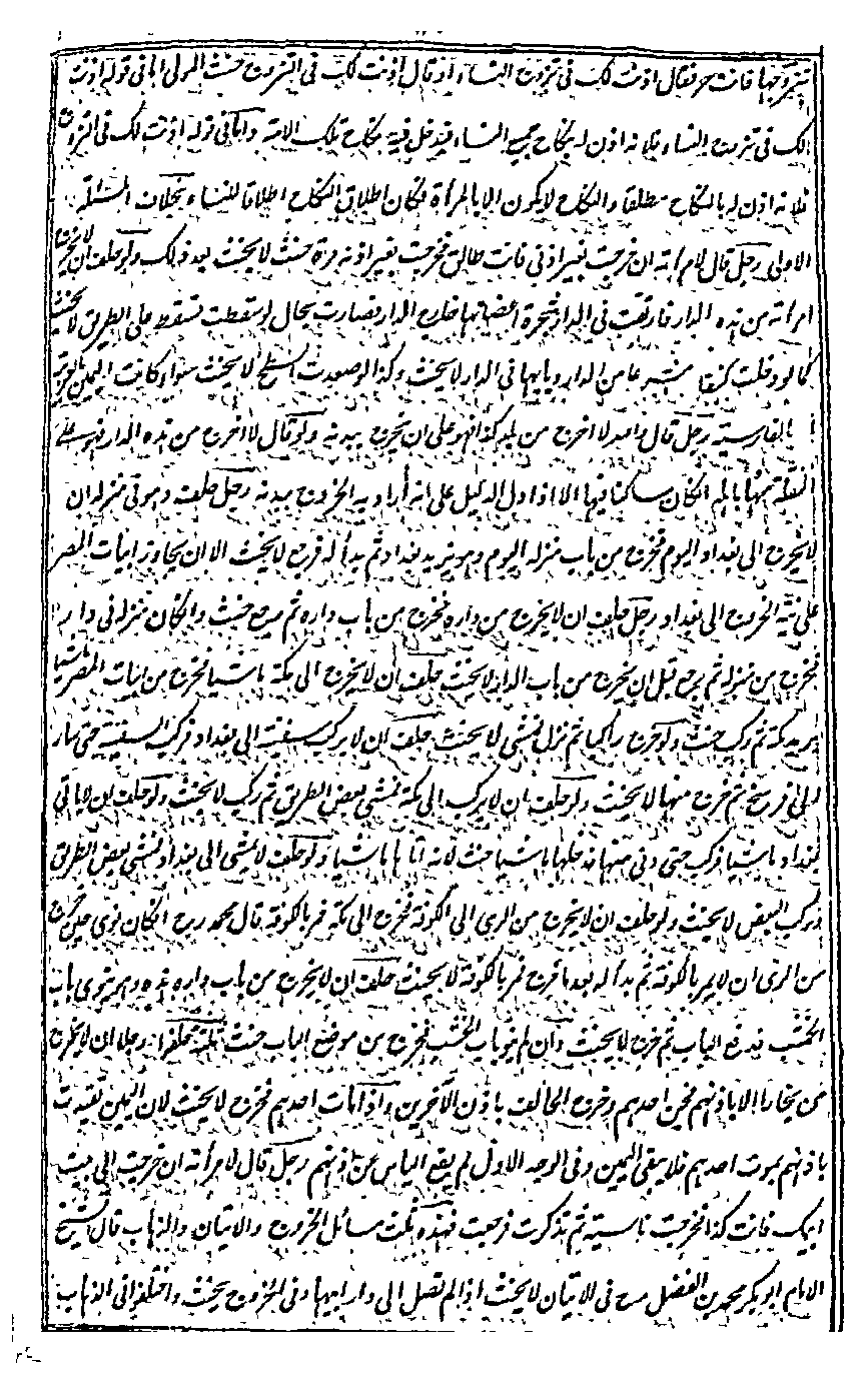 تتزوجها فانت حر فقال اذنت لك فى تزوج النساء او قال اذنت لك فى التزوج حنث المولى اما فى قوله اذنت
لك فى تزوج النساء فلانه اذن له بنكاح جميع النساء فيدخل فيه نكاح تلك الامة واما فى قوله اذنت لك فى التزوج
فلانه اذن له بالنكاح مطلقا والنكاح لا يكون الا بالمرأة فكان اطلاق النكاح اطلاقا للنساء بخلاف المسئلة
الاولى رجل قال لامرأته ان خرجت بغير اذنى فانت طالق فخرجت بغير اذنه مرة حنث لا يحنث بعد ذلك ولو حلف ان لا تخرج
امرأته من هذه الدار فارتقت فى الدار شجرة اغصانها خارج الدار فصارت بحال لو سقطت تسقط على الطريق لا يحنث
كما لو دخلت كنيفا شارعا من الدار وبابها فى الدار لا يحنث وكذا لو صعدت السطح لا يحنث سواء كانت اليمين بالعربية
او بالفارسية رجل قال والله لا اخرج من بلد كذا فهو على ان يخرج ببدنه ولو قال لا اخرج من هذه الدار فهو على
النقلة منها باهله انكان ساكنا فيها الا اذا دل الدليل على انه أراد به الخروج ببدنه رجل حلف وهو فى منزله ان
لا يخرج الى بغداد اليوم فخرج من باب منزله اليوم وهو يريد بغداد ثم بدأ له فرجع لا يحنث الا ان يجاوز ابيات المصر
على نية الخروج الى بغداد رجل حلف ان لا يخرج من داره فخرج من باب داره ثم رجع حنث وانكان منزله فى دار
فخرج من منزله ثم رجع قبل ان يخرج من باب الدار لا يحنث حلف ان لا يخرج الى مكة ماشيا فخرج من ابيات المصر ماشيا
يريد مكة ثم ركب حنث ولو خرج راكبا ثم نزل فمشى لا يحنث حلف ان لا يركب سفينة الى بغداد فركب السفينة حتى سار
الى فرسخ ثم خرج منها لا يحنث ولو حلف ان لا يركب الى مكة فمشى بعض الطريق ثم ركب لا يحنث ولو حلف ان لا ياتى
بغداد ماشيا فركب حتى دنى منها فدخلها ماشيا حنث لانه اتاها ماشيا ولو حلف لا يمشى الى بغداد فمشى بعض الطريق
وركب البعض لا يحنث ولو حلف ان لا يخرج من الرى الى الكوفة فخرج الى مكة فمر بالكوفة قال محمد رح انكان نوى حين خرج
من الرى ان لا يمر بالكوفة ثم بدأ له بعد ما خرج فمر بالكوفة لا يحنث حلف ان لا يخرج من باب داره هذه وهو ينوى باب
الخشب فدفع الباب ثم خرج لا يحنث وان لم ينو باب الخشب فخرج من موضع الباب حنث ثلثة حلفوا رجلا ان لا يخرج
من بخارا الا باذنهم فجن احدهم وخرج الحالف باذن الآخرين واذا مات احدهم فخرج لا يحنث لان اليمين تقيدت
باذنهم بموت احدهم فلا يبقى اليمين وفى الوجه الاول لم يقع الياس عن اذنهم رجل قال لامرأته ان خرجت الى بيت
ابيك فانت كذا فخرجت ناسية ثم تذكرت فرجعت فهذه ثلث مسائل الخروج والاتيان والذهاب قال الشيخ
الامام ابو بكر محمد بن الفضل رح فى الاتيان لا يحنث اذا لم تصل الى دار ابيها وفى الخروج يحنث واختلفوا فى الذهاب